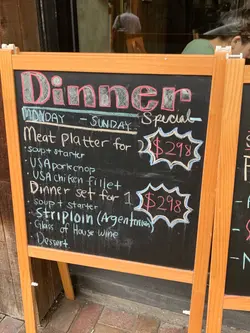 Dinner
MONDAY - SUNDAY Special
Meat Platter for 2 $298
• soup + starter
• USA porkchop
• USA chicken fillet
Dinner set for 1 $298
• soup + starter
• Striploin (Argentinian)
• Glass of House Wine
• Dessert